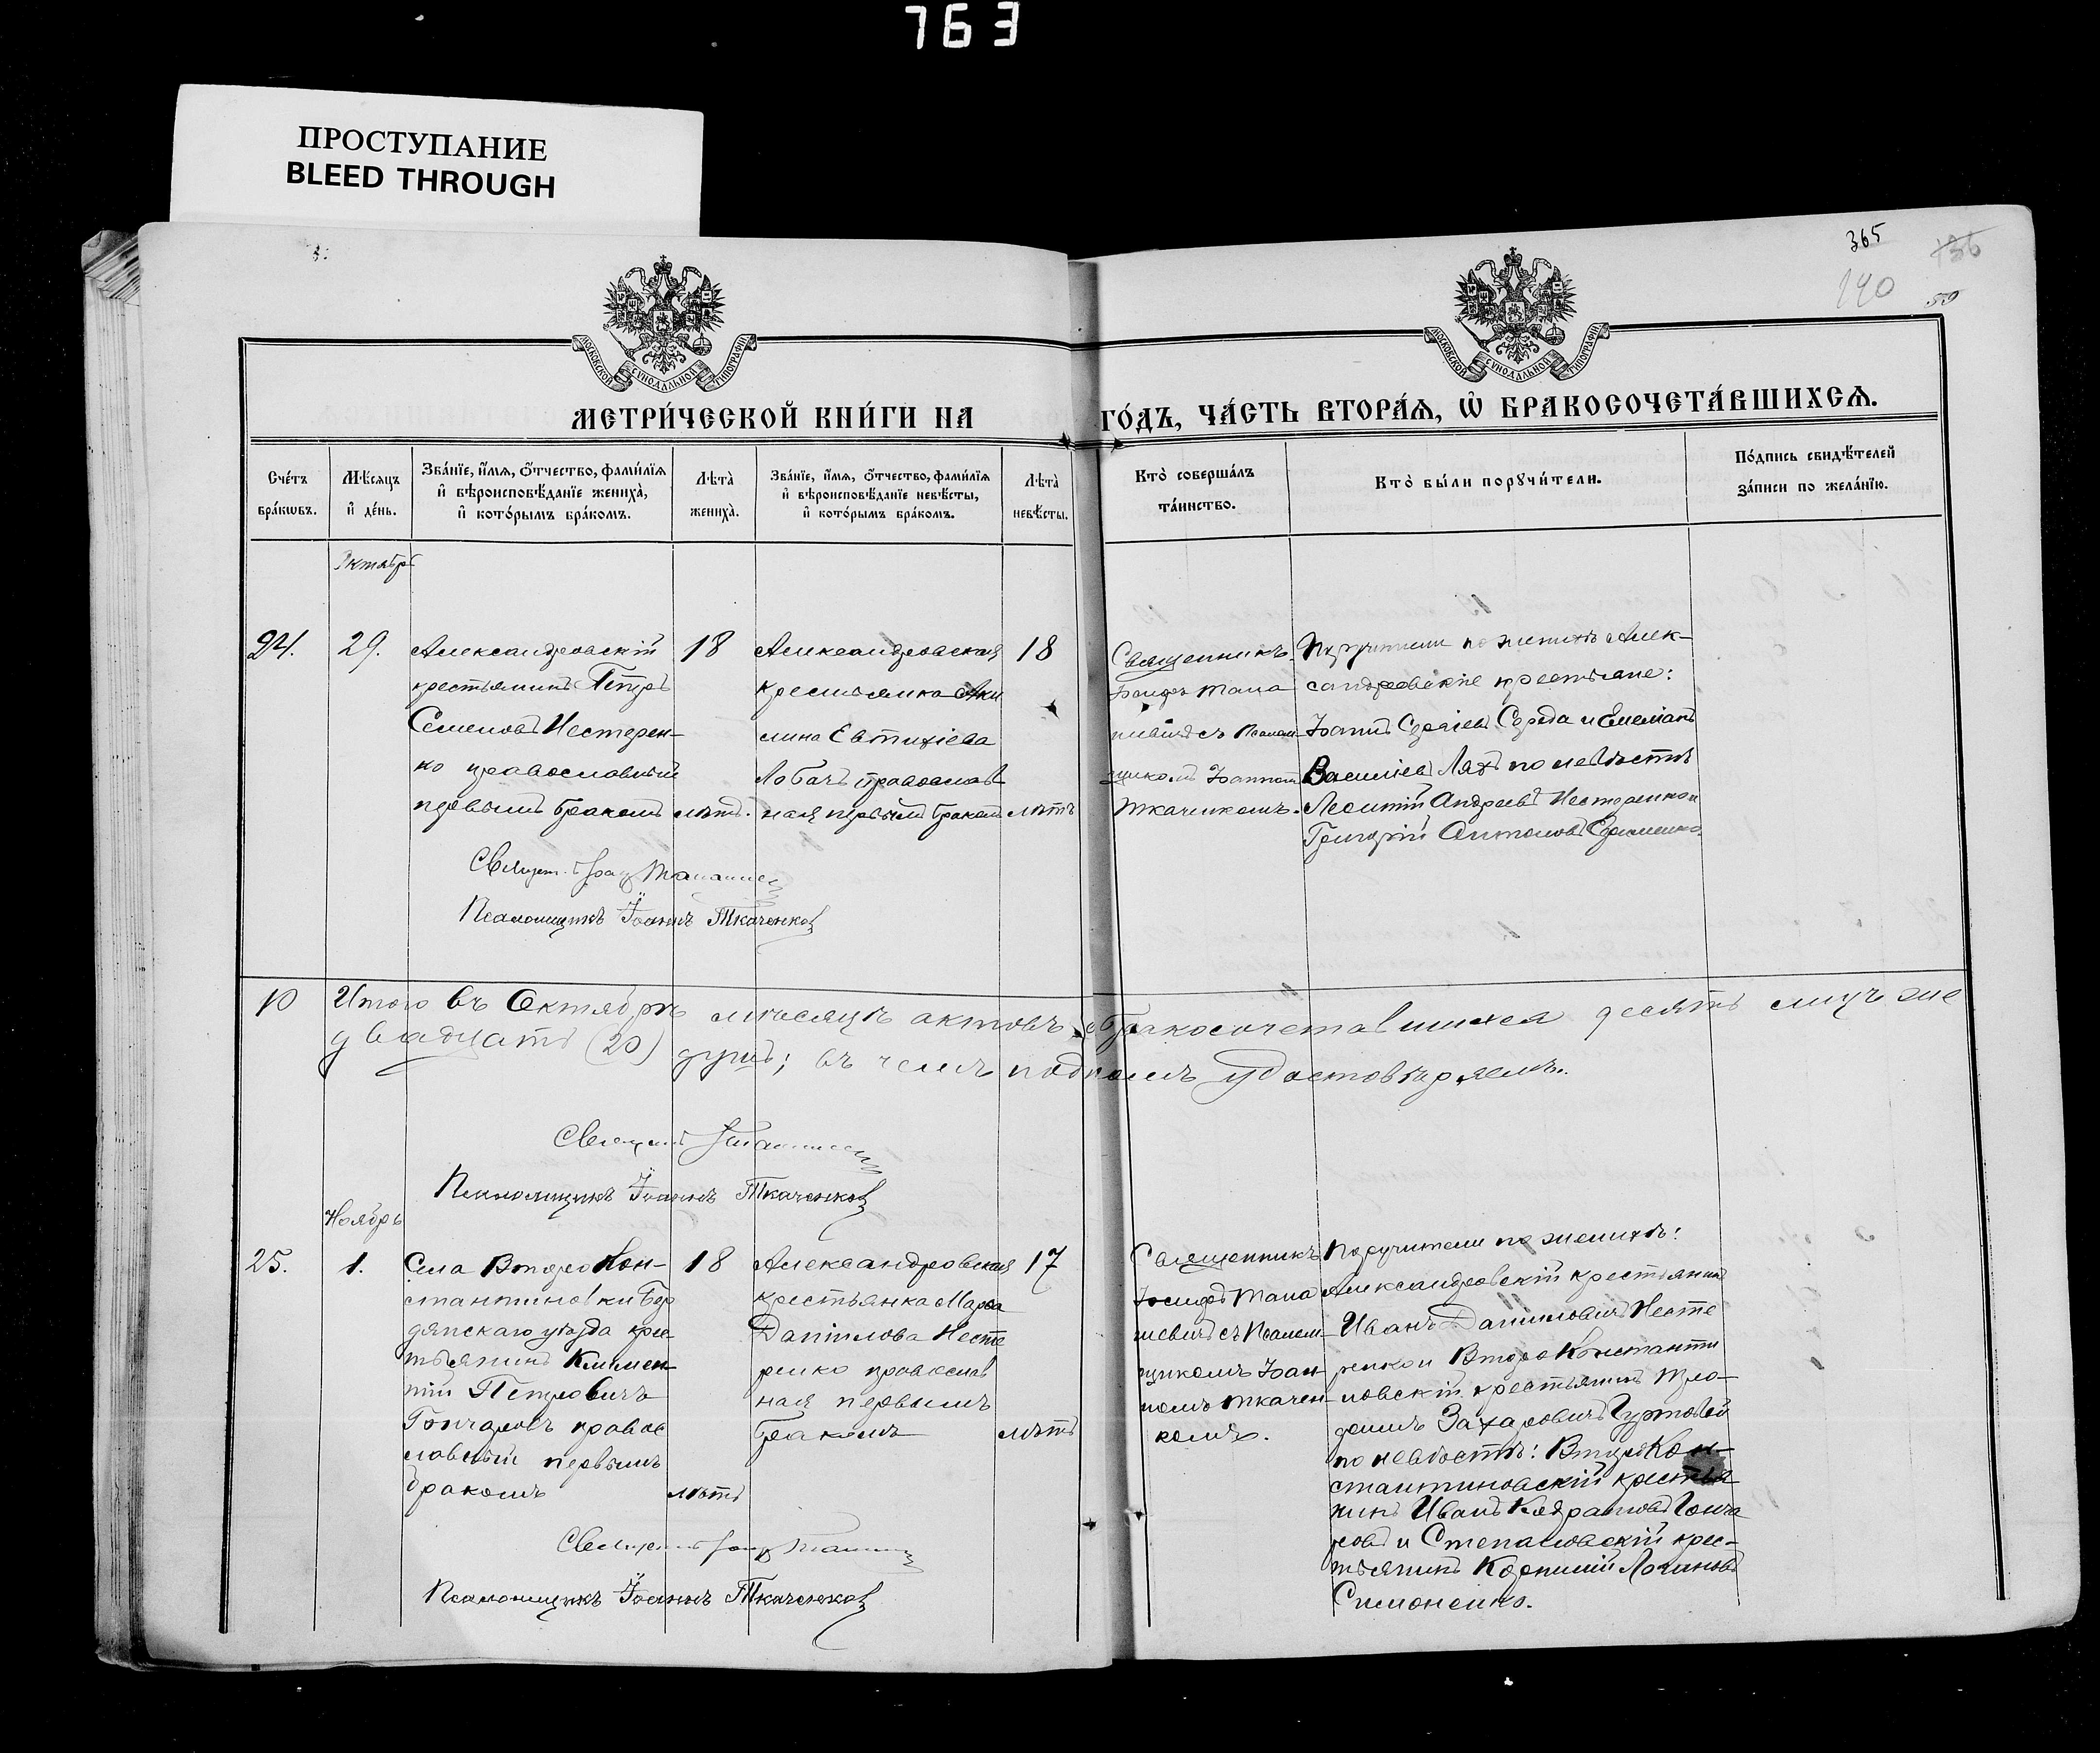 763
ПРОСТУПАНИЕ
BLEED THROUGH
365
136
190
59
МОСКОВСКОЙ СѴНОДАЛЬНОЙ ТИПОГРАФІИ
МОСКОВСКОЙ СѴНОДАЛЬНОЙ ТИПОГРАФІИ
МЕТРИ́ЧЕСКОЙ КНИ́ГИ НА ГО́ДЪ, ЧА́СТЬ ВТОРА́Я, Ѽ БРАКОСОЧЕТА́ВШИХСЯ.
Сче́тъ бра́кѡвъ.
Мѣ́сяцъ и҆ де́нь.
Зва́нїе, и҆́мя, ѻ҆́тчество, фами́лїя и҆ вѣроисповѣ́данїе жениха̀, и҆ кото́рымъ бра́комъ.
Лѣта̀ жениха̀.
Зва́нїе, и҆́мя, ѻ҆́тчество, фами́лїя и҆ вѣроисповѣ́данїе невѣ́сты, и҆ кото́рымъ бра́комъ.
Лѣта̀ невѣ́сты.
Кто̀ соверша́лъ та́инство.
Кто̀ бы́ли порꙋчи́тели.
По́дпись свидѣ́телей за́писи по жела́нїю.
Октябрь
24.
29.
Александровскій
крестьянинъ Петръ
Семеновъ Нестерен-
ко православный
первымъ бракомъ
18
лѣтъ.
Александровская
крестьянка Аки
лина Евтихіева
Лобачъ православ
ная первымъ бракомъ
18
лѣтъ
Священникъ
Іосифъ Тана
шевичъ съ Псалом-
щикомъ Іоанномъ
Ткаченкомъ.
Поручители по женихѣ Алек-
сандровскіе крестьяне:
Іоаннъ Сергіевъ Середа и Емеліанъ
Василіевъ Ляхъ по невѣстѣ
Леонтій Андреевъ Нестеренко и
Григорій Антоновъ
Священ. Іос. Танашев
Псаломщикъ Іоаннъ Ткаченковъ
10
Итого въ Октябрѣ мѣсяцѣ актовъ бракосочетавшихся десять лицъ же
двадцать (20) душъ; въ чемъ подписомъ удостовѣряемъ.
Священникъ Танашев
Псаломщикъ Іоаннъ Ткаченковъ
Ноябрь
25.
1.
Села Второ Кон-
стантиновки Бер
дянскаго уѣзда крес-
тьянинъ Климен-
тій Петровичъ
Гончаровъ правос
лавный первымъ
бракомъ
18
лѣтъ
Александровская
крестьянка Марѳа
Даніилова Несте
ренко православ
ная первымъ
бракомъ
17
лѣтъ
Священникъ
Іосифъ Тана
шевичъ съ Псалом-
щикомъ Іоан-
номъ Ткачен-
комъ.
Поручители по женихѣ:
Александровскій крестьянинъ
Иванъ Даниловичъ Несте
ренко и Второ Константи
новскій крестьянинъ Тро-
фимъ Захаровичъ Гуртовой
по невѣстѣ: Второ Кон-
стантиновскій крестья-
нинъ Иванъ Кондратовъ Гонча
ровъ и Степановскій крес-
тьянинъ Корнилій Логиновъ
Симоненко.
Священникъ Іосиф Танашев
Псаломщикъ Іоаннъ Ткаченковъ